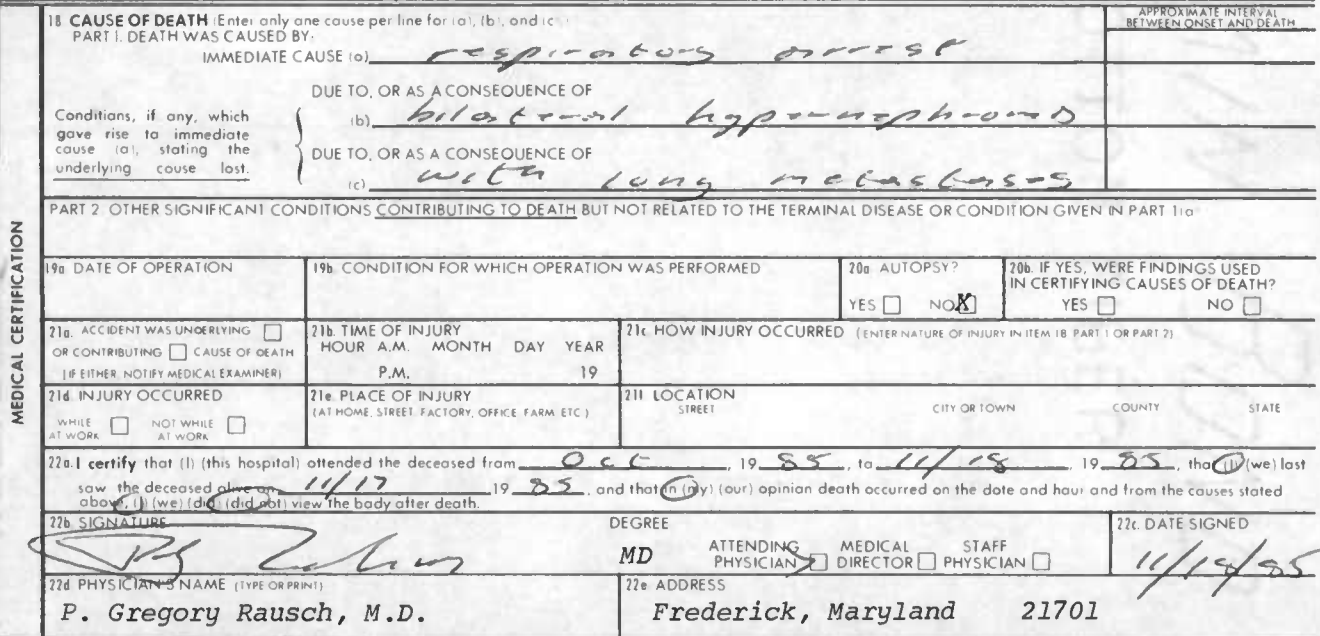 18 CAUSE OF DEATH (Enter only one cause per line for (a), (b), and (c
APPROXIMATE INTERVAL
BETWEEN ONSET AND DEATH
PART I. DEATH WAS CAUSED BY:
IMMEDIATE CAUSE (a) respiratory arrest
DUE TO, OR AS A CONSEQUENCE OF
Conditions, if any, which
gave rise to immediate
cause (a), stating the
underlying cause last.
(b) bilateral hypernephroma
DUE TO, OR AS A CONSEQUENCE OF
(c) with lung metastases
PART 2. OTHER SIGNIFICANT CONDITIONS CONTRIBUTING TO DEATH BUT NOT RELATED TO THE TERMINAL DISEASE OR CONDITION GIVEN IN PART 1(a
MEDICAL CERTIFICATION
19a DATE OF OPERATION
19b. CONDITION FOR WHICH OPERATION WAS PERFORMED
20a AUTOPSY?
YES NO X
20b. IF YES, WERE FINDINGS USED
IN CERTIFYING CAUSES OF DEATH?
YES NO
21a. ACCIDENT WAS UNDERLYING
OR CONTRIBUTING CAUSE OF DEATH
(IF EITHER, NOTIFY MEDICAL EXAMINER)
21b. TIME OF INJURY
HOUR A.M. MONTH DAY YEAR
P.M. 19
21c HOW INJURY OCCURRED (ENTER NATURE OF INJURY IN ITEM 18 PART 1 OR PART 2)
21d INJURY OCCURRED
WHILE AT WORK NOT WHILE AT WORK
21e PLACE OF INJURY
(AT HOME, STREET, FACTORY, OFFICE, FARM, ETC.)
21f LOCATION
STREET CITY OR TOWN COUNTY STATE
22a. I certify that (I) (this hospital) attended the deceased from Oct 19 85, to 11/18 19 85, that (I) (we) last
saw the deceased alive on 11/17 19 85, and that in (my) (our) opinion death occurred on the date and hour and from the causes stated
above, (I) (we) (did) (did not) view the body after death.
22b SIGNATURE
DEGREE
MD
ATTENDING PHYSICIAN MEDICAL DIRECTOR STAFF PHYSICIAN
22c. DATE SIGNED
11/18/85
22d PHYSICIAN'S NAME (TYPE OR PRINT)
P. Gregory Rausch, M.D.
22e ADDRESS
Frederick, Maryland 21701